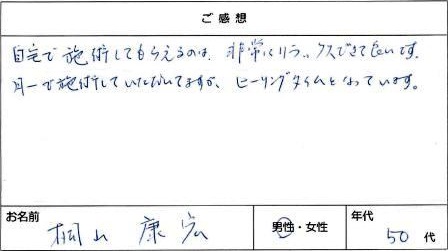 ご感想
自宅で施術してもらえるのは、非常にリラックスできて良いです。
月一で施術していただいてますが、ヒーリングタイムとなっています。
お名前 桐山 康宏 男性・女性 年代 50代